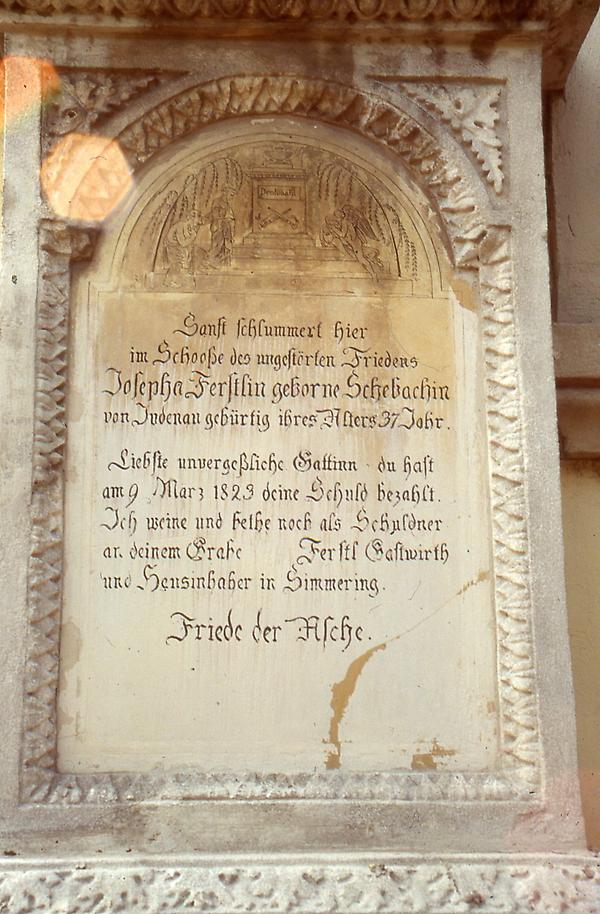 Denkmahl
Sanft schlummert hier
im Schooße des ungestörten Friedens
Josepha Ferstlin geborne Schebachin
von Judenau gebürtig ihres Alters 37 Jahr.
Liebste unvergeßliche Gattinn du hast
am 9 März 1823 deine Schuld bezahlt.
Ich weine und bethe noch als Schuldner
an deinem Grabe Ferstl Gastwirth
und Hausinhaber in Simmering.
Friede der Asche.